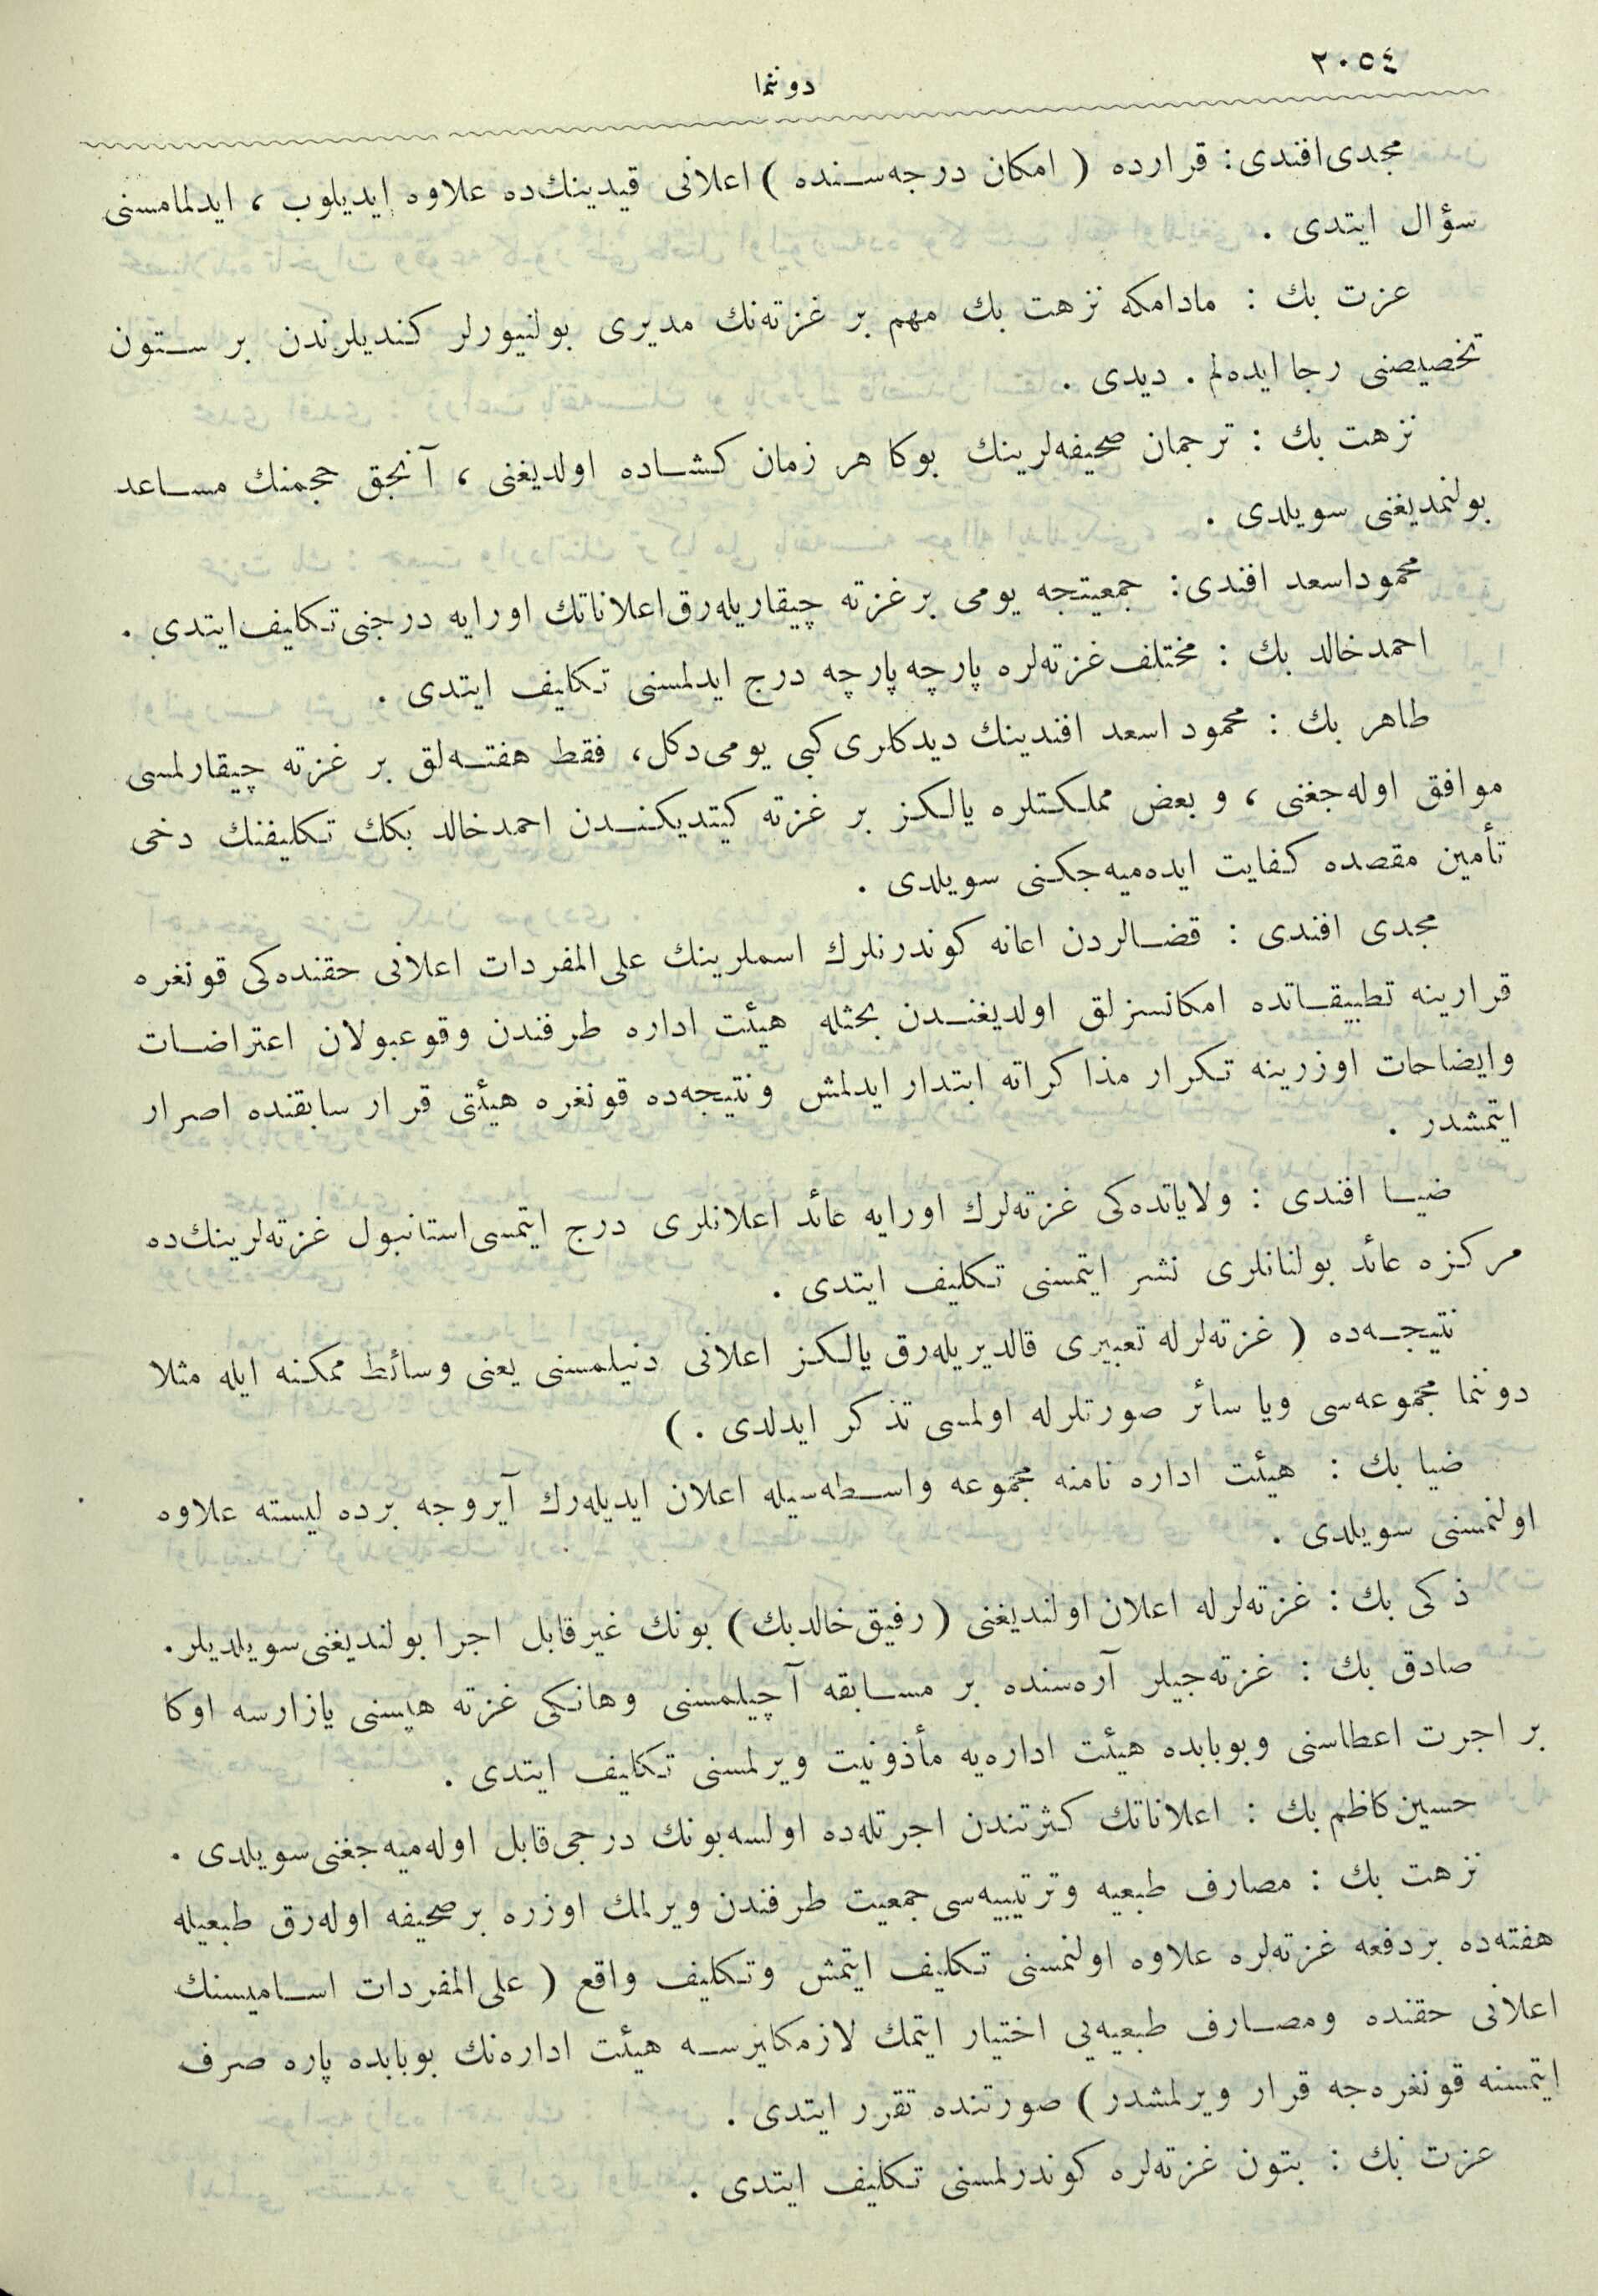 ٢٠٥٤
دوننما
مجدی افندی : قرارده ( امكان درجه‌سنده ) اعلانی قیدینك‌ده علاوه ایدیلوب ، ایدلمامسنی
سؤال ایتدی .
عزت بك : مادامكه نزهت بك مهم بر غزته‌نك مدیری بولنیورلر كندیلرندن بر ستون
تخصیصنی رجا ایده‌لم . دیدی .
نزهت بك : ترجمان صحیفه‌لرینك بوكا هر زمان كشاده اولدیغنی ، آنجق حجمنك مساعد
بولنمدیغنی سویلدی .
محمود اسعد افندی : جمعیتجه یومی بر غزته چیقاریله‌رق اعلاناتك اورایه درجنی تكلیف ایتدی .
احمد خالد بك : مختلف غزته‌لره پارچه پارچه درج ایدلمسنی تكلیف ایتدی .
طاهر بك : محمود اسعد افندینك دیدكلری كبی یومی دكل ، فقط هفته‌لق بر غزته چیقارلمسی
موافق اوله‌جغنی ، و بعض مملكتلره یالكز بر غزته كیتدیكندن احمد خالد بكك تكلیفنك دخی
تأمین مقصده كفایت ایده‌میه‌جكنی سویلدی .
مجدی افندی : قضالردن اعانه كوندرنلرك اسملرینك علی‌المفردات اعلانی حقنده‌كی قونغره
قرارینه تطبیقاتده امكانسزلق اولدیغندن بحثله هیئت اداره طرفندن وقوعبولان اعتراضات
وایضاحات اوزرینه تكرار مذاكراته ابتدار ایدلمش ونتیجه‌ده قونغره هیئتی قرار سابقنده اصرار
ایتمشدر .
ضیا افندی : ولایاتده‌كی غزته‌لرك اورایه عائد اعلانلری درج ایتمسی استانبول غزته‌لرینك‌ده
مركزه عائد بولنانلری نشر ایتمسنی تكلیف ایتدی .
نتیجه‌ده ( غزته‌لرله تعبیری قالدیریله‌رق یالكز اعلانی دنیلمسنی یعنی وسائط ممكنه ایله مثلا
دوننما مجموعه‌سی ویا سائر صورتلرله اولمسی تذكر ایدلدی . )
ضیا بك : هیئت اداره نامنه مجموعه واسطه‌سیله اعلان ایدیله‌رك آیروجه برده لیسته علاوه
اولنمسنی سویلدی .
ذكی بك : غزته‌لرله اعلان اولندیغنی ( رفیق خالد بك ) بونك غیرقابل اجرا بولندیغنی سویلدیلر .
صادق بك : غزته‌جیلر آره‌سنده بر مسابقه آچیلمسنی وهانكی غزته هپسنی یازارسه اوكا
بر اجرت اعطاسنی وبوبابده هیئت اداره‌یه مأذونیت ویرلمسنی تكلیف ایتدی .
حسین كاظم بك : اعلاناتك كثرتندن اجرتله‌ده اولسه بونك درجی قابل اوله‌میه‌جغنی سویلدی .
نزهت بك : مصارف طبعیه وترتیبیه‌سی جمعیت طرفندن ویرلمك اوزره بر صحیفه اوله‌رق طبعیله
هفته‌ده بردفعه غزته‌لره علاوه اولنمسنی تكلیف ایتمش وتكلیف واقع ( علی‌المفردات اسامیسنك
اعلانی حقنده ومصارف طبعیه‌یی اختیار ایتمك لازمكلیرسه هیئت اداره‌نك بوبابده پاره صرف
ایتمسنه قونغره‌جه قرار ویرلمشدر ) صورتنده تقرر ایتدی .
عزت بك : بتون غزته‌لره كوندرلمسنی تكلیف ایتدی .